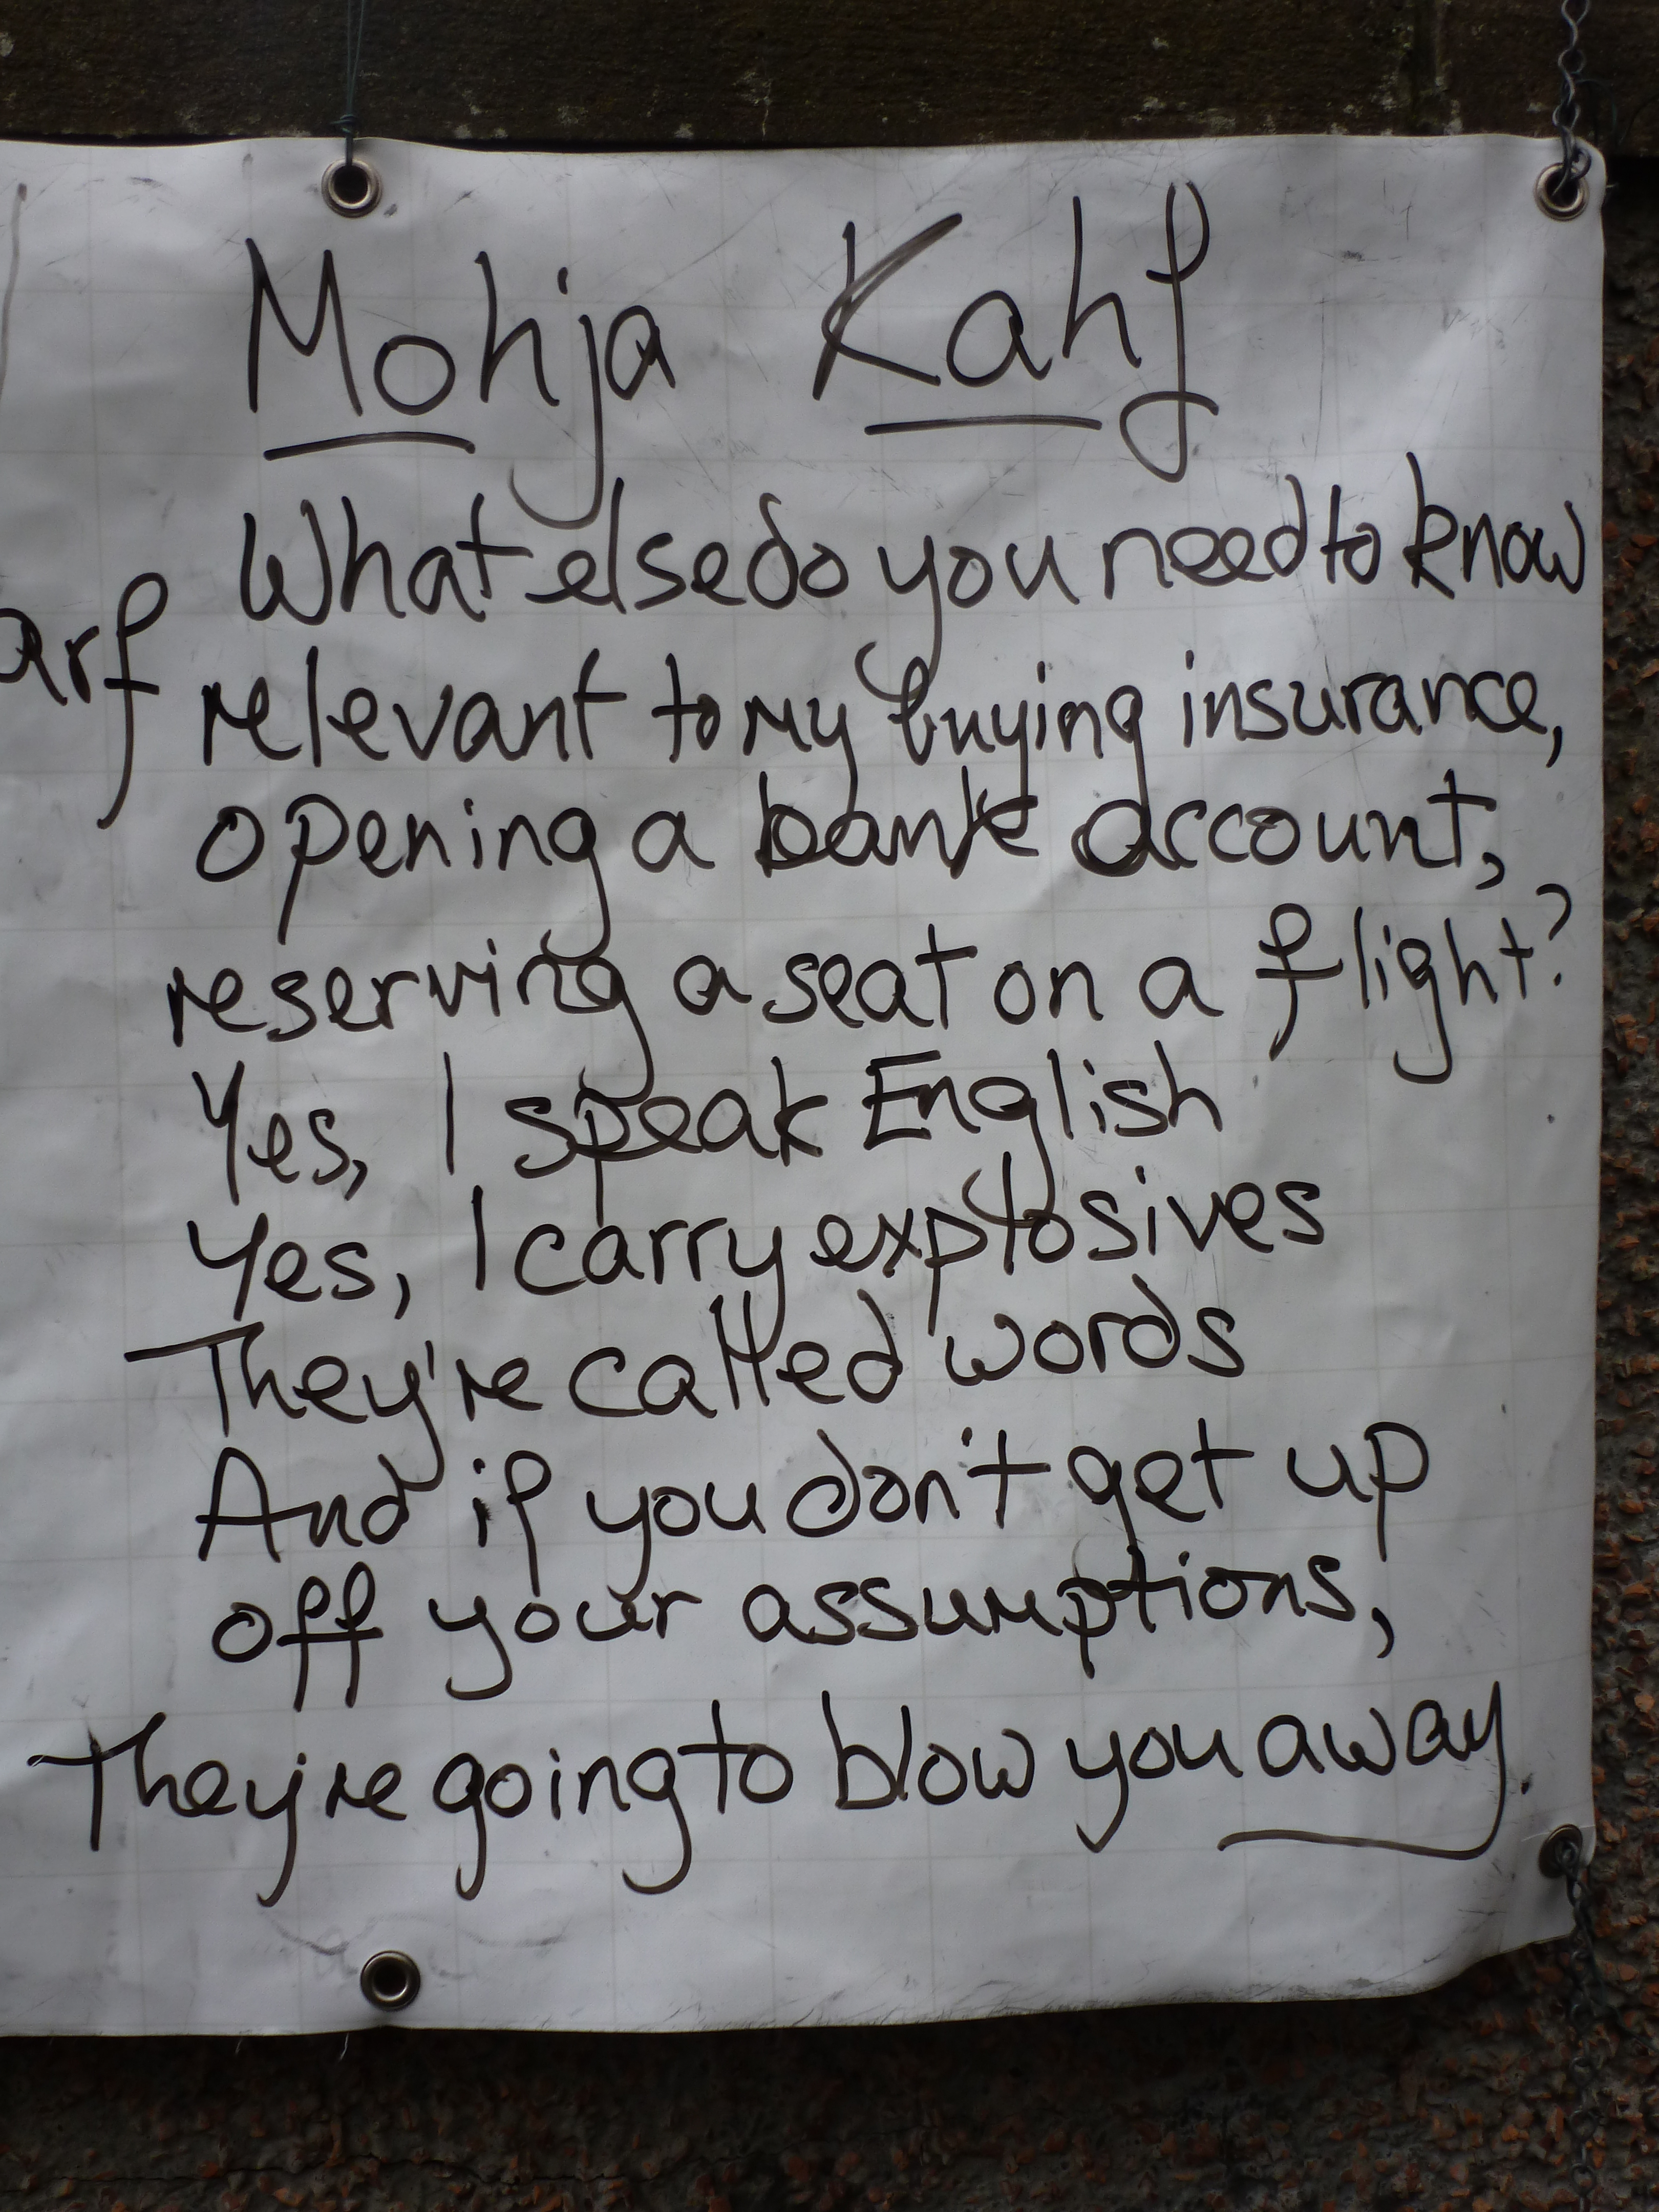 Mohja Kahf
What else do you need to know
arf
relevant to my buying insurance,
opening a bank account,
reserving a seat on a flight?
Yes, I speak English
Yes, I carry explosives
They're called words
And if you don't get up
off your assumptions,
They're going to blow you away.